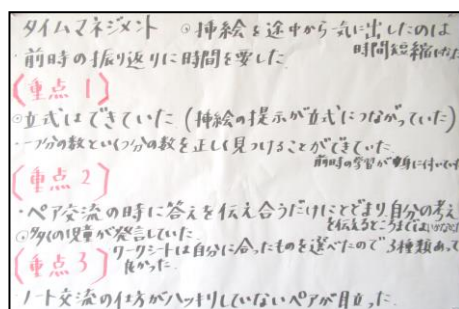 タイムマネジメント ◎挿絵を途中から一気に出したのは
時間短縮
・前時の振り返りに時間を要した
〔重点1〕
◎立式はできていた(挿絵の提示が立式につながっていた)
・一つ分の数といくつ分の数を正しく見つけることができていた。
前時の学習が身に付いて
〔重点2〕
・ペア交流の時に答えを伝え合うだけにとどまり、自分の考え
を伝えるところまでは
◎多くの児童が発言していた。
ワークシートは自分に合ったものを選べたので3種類あって
〔重点3〕
良かった。
ノート交流の仕方がハッキリしていないペアが目立った。